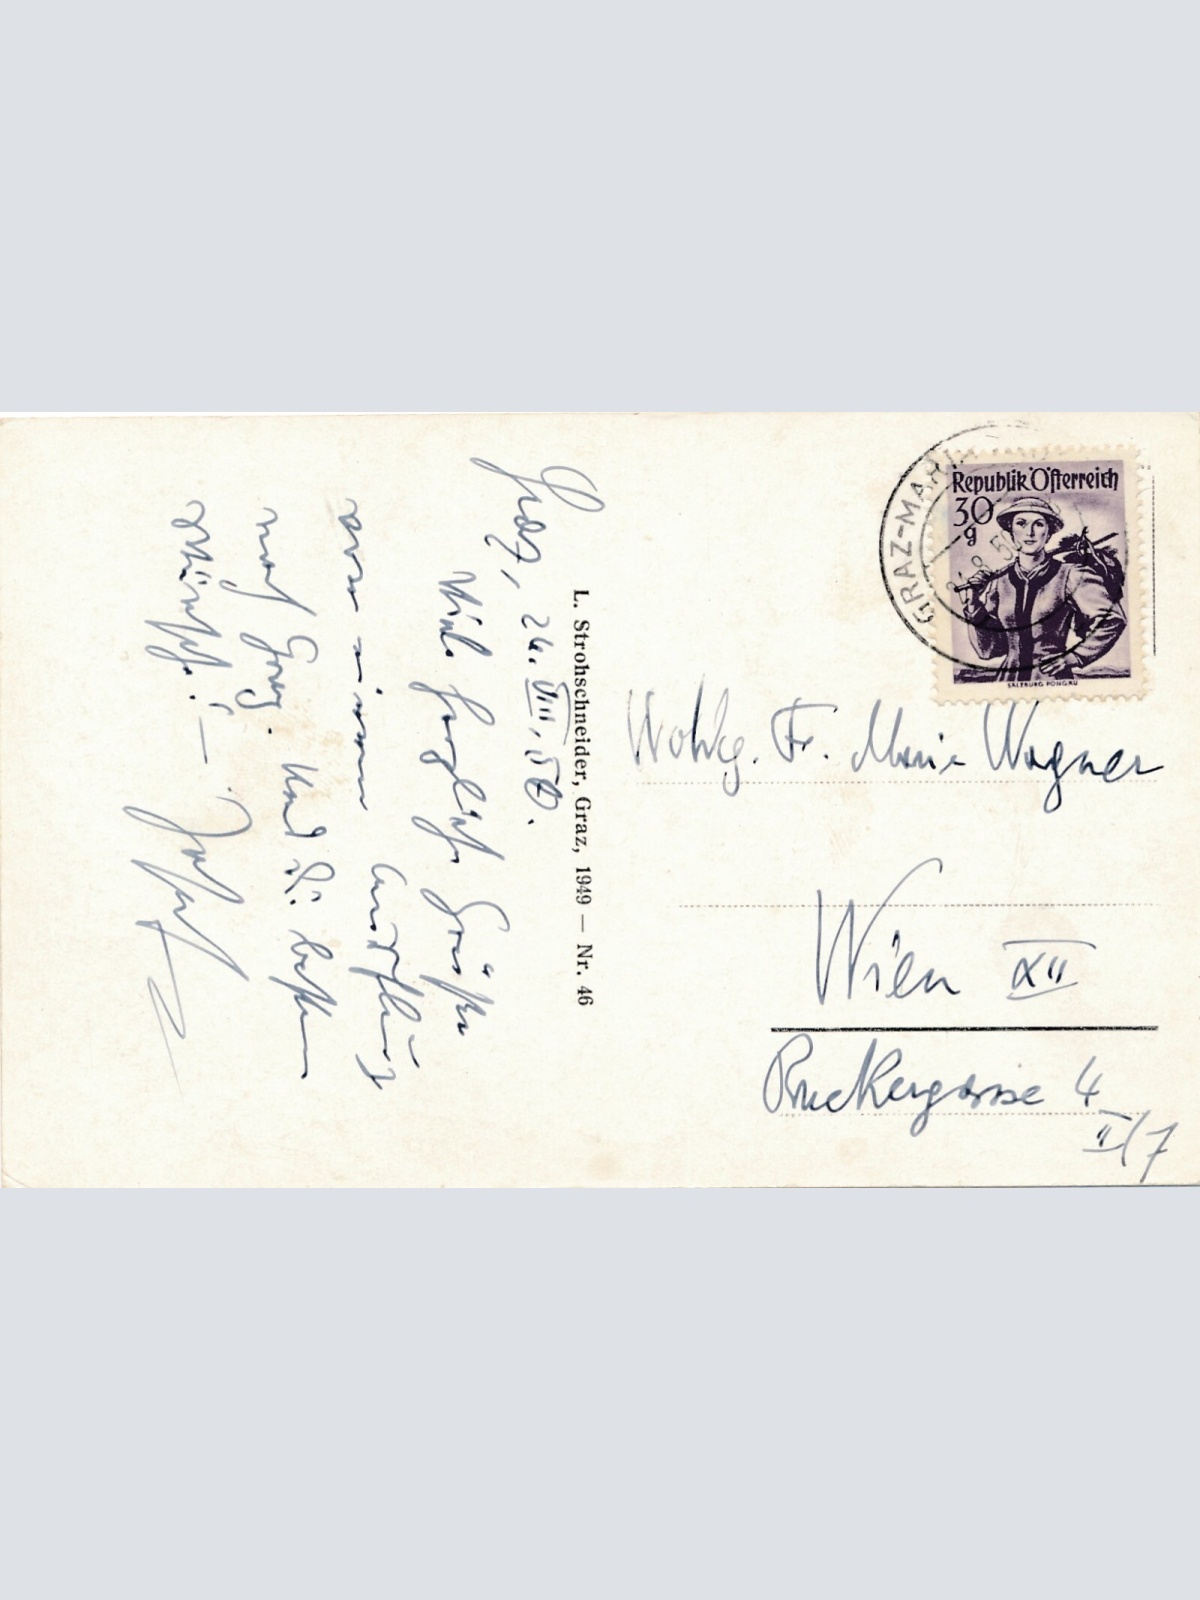 Graz, 26. VIII. 50.
Viele herzliche Grüße
von einem Ausflug
nach Graz. Und die besten
Wünsche! –
Josef
L. Strohschneider, Graz, 1949 — Nr. 46
GRAZ-MARI
8. 50
Republik Österreich
30
g
SALZBURG PONGAU
Wohlg. Fr. Marie Wagner
Wien XII
Ruckergasse 4
II/7